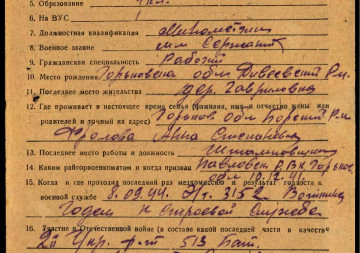 5. Образование 7 кл.
6. На ВУС
7. Должностная квалификация Минометчик
8. Военное звание мл Сержант
9. Гражданская специальность Рабочий
10. Место рождения Горьковская обл Дивеевский Р-н
11. Последнее место жительства дер. Гавриловка
12. Где проживает в настоящее время семья (фамилия, имя и отчество жены или
родителей и точный их адрес) Горьков. обл Борский Р-н
Фролова Анна Степановна
13. Последнее место работы и должность
14. Каким райгорвоенкоматом и когда призван Павловск Р.В.К Горьков.
обл 10.12.41.
15. Когда и где проходил последний раз медкомиссию и результат годности к
военной службе 8.09.44. 3152
Годен к строевой службе
16. Участие в Отечественной войне (в составе какой последней части и в качестве
2й Укр. ф-т 513 Бат.